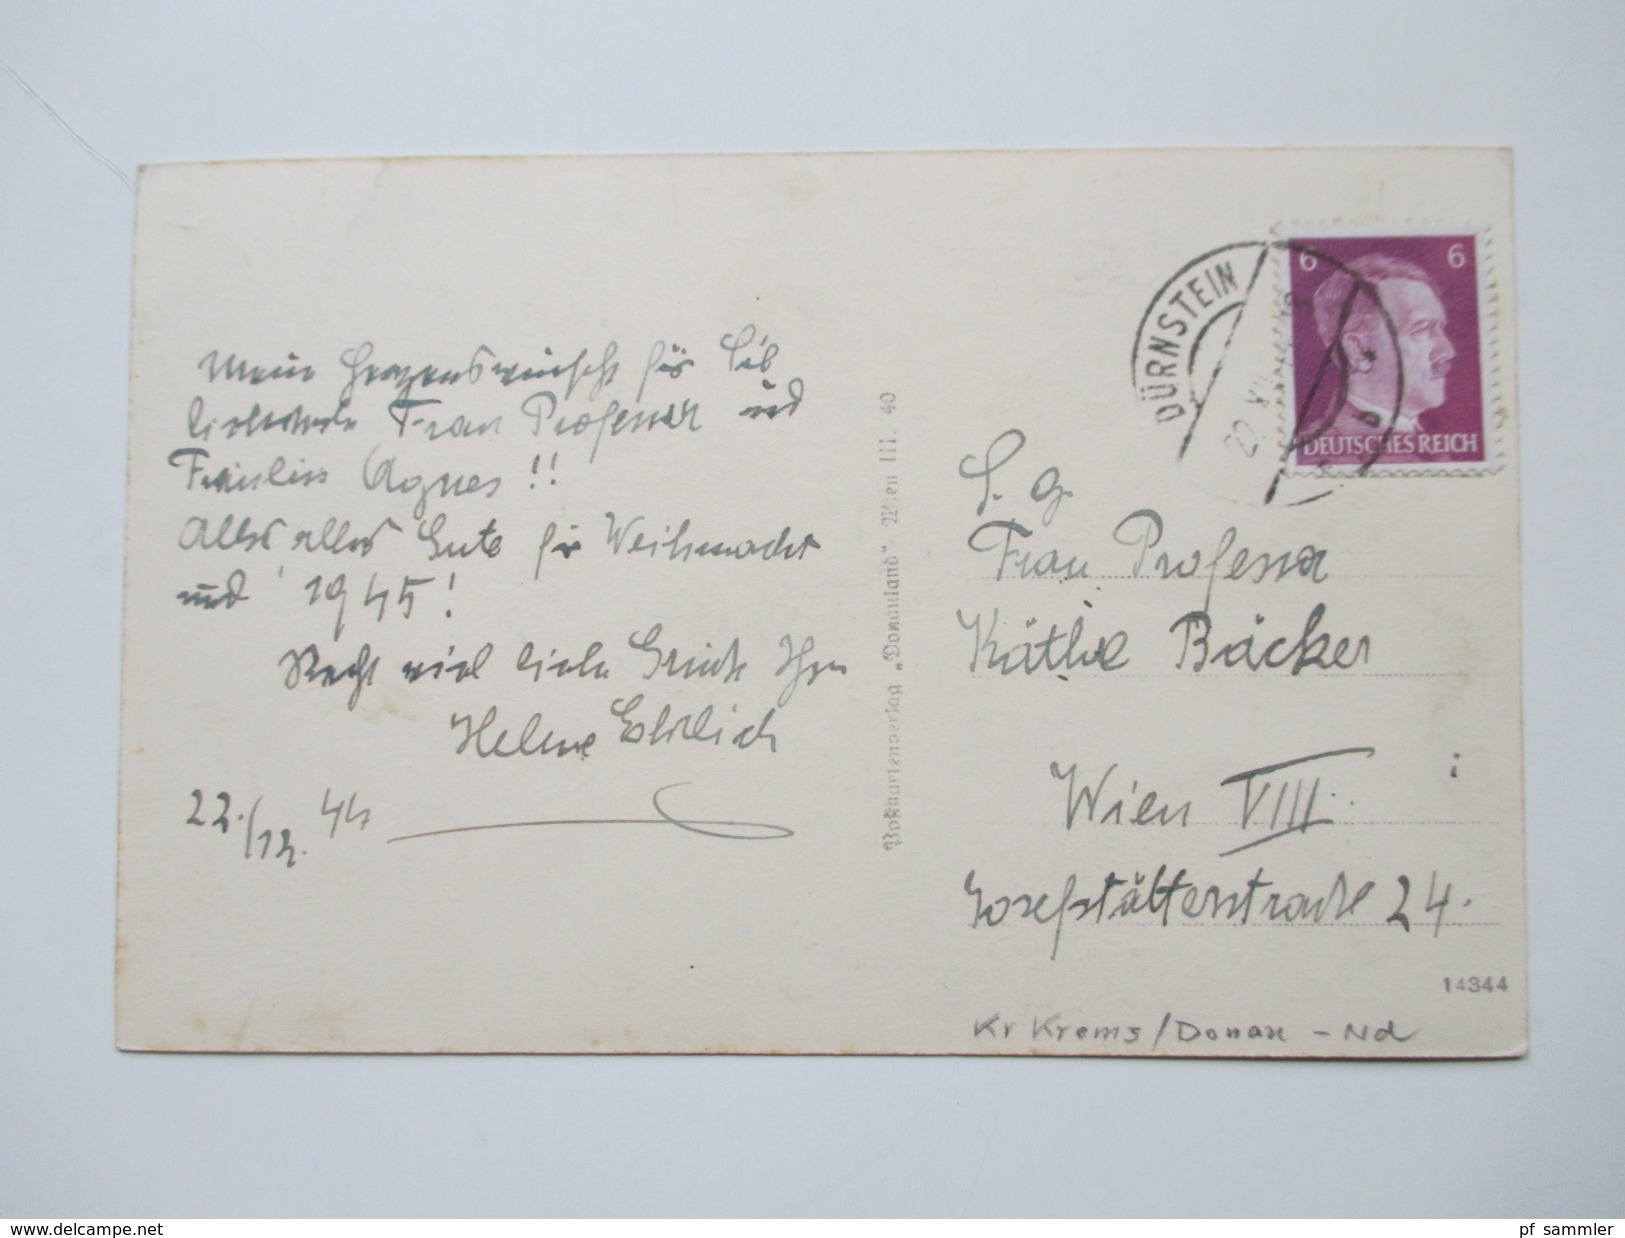 Meine Herzenswünsche für
Frau Professor und
Fräulein Agnes!!
Alles alles Gute für Weihnacht
und 1945!
Recht viel liebe Grüße Ihre
Helene Ehrlich
22./12. 44
Postkartenverlag „Donauland" Wien III. 40
DÜRNSTEIN
6 6
DEUTSCHES REICH
S. g.
Frau Professor
Käthe Bäcker
Wien VIII.
Josefstätterstraße 24.
14344
Kr Krems/Donau - Nd
www.delcampe.net
pf_sammler